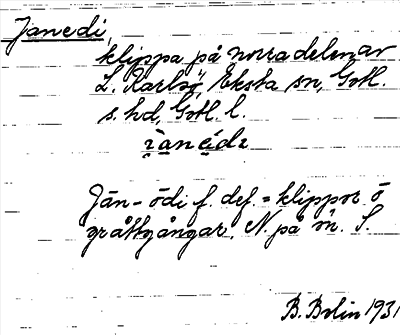 Janedi,
klippa på norra delen av
L. Karlsö, Eksta sn, Gotl.
s. hd, Gotl. l.
Jān-ōdi f. def. = klippor o
gråttgångar. N. på ön. S.
B. Bolin 1931